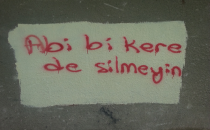 Abi bi kere
de silmeyin